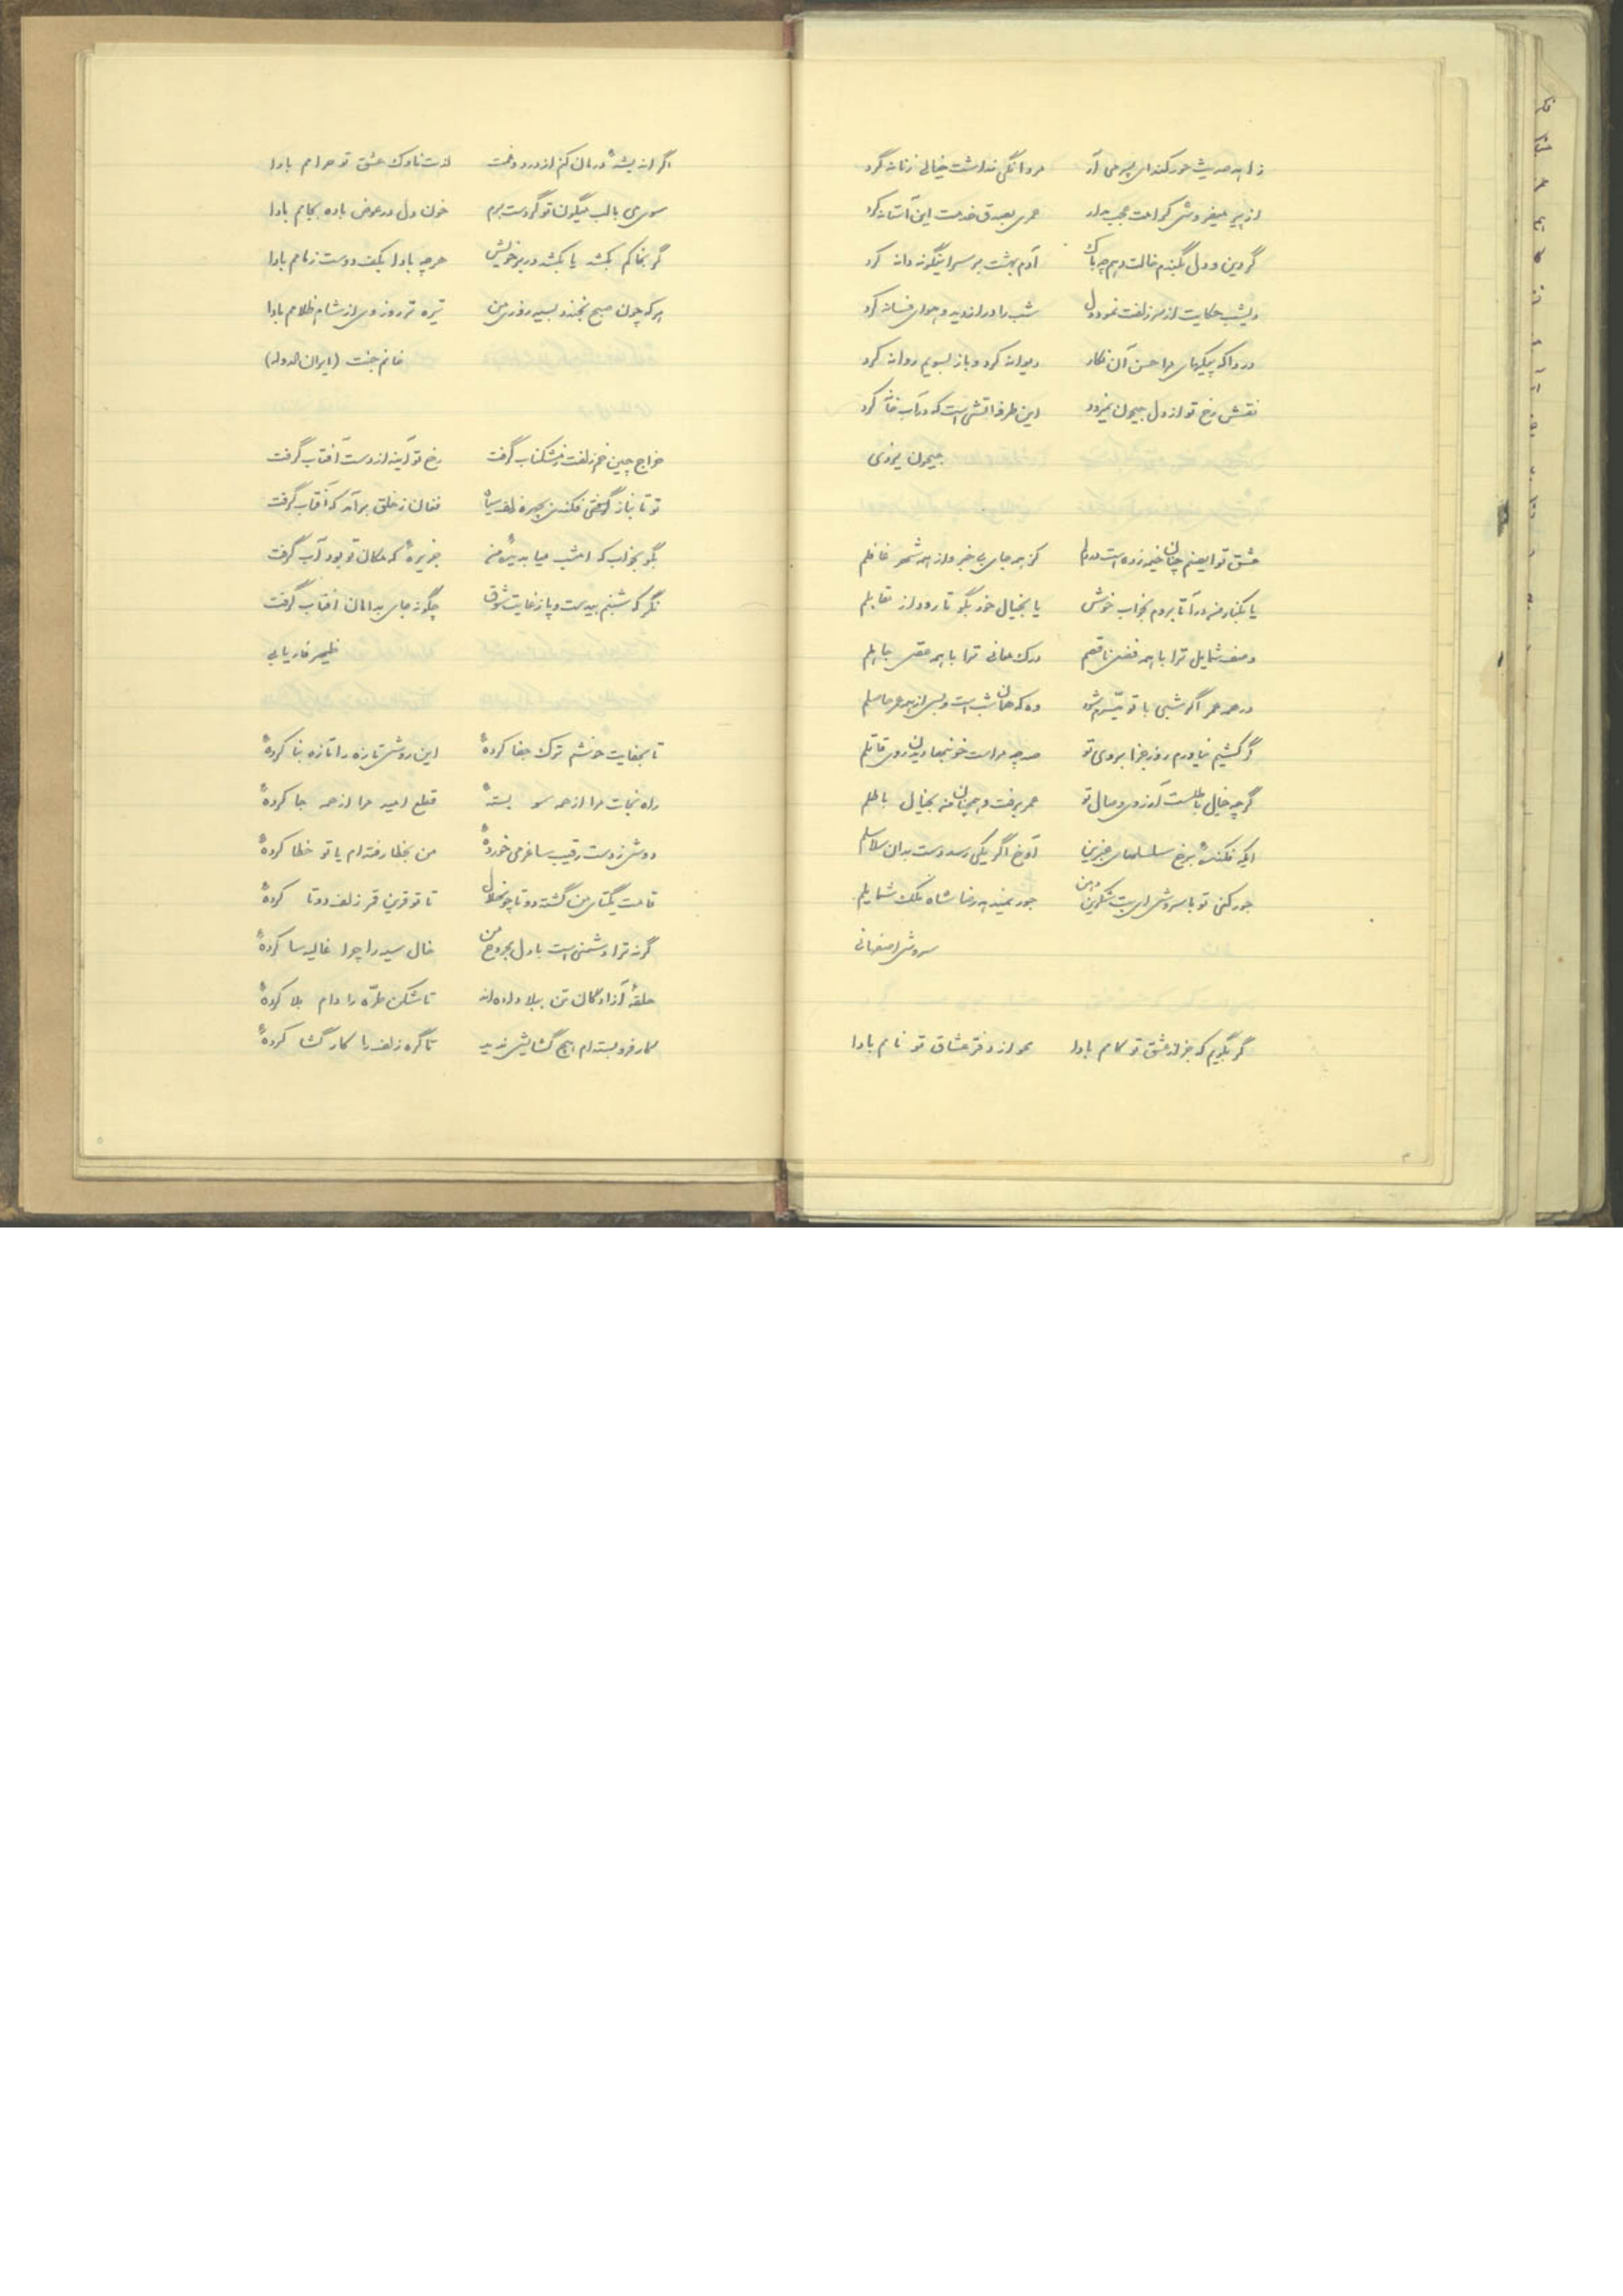 زاهد حدیث حور کند ای پسر می آر    مردانگی نداشت خیالی زنانه کرد
از پیر میفروش کرامت عجب مدار    عمری بصدق خدمت این آستانه کرد
گر دین و دل بگندم خالت دهم چه باک    آدم بهشت بر سر اینگونه دانه کرد
دیشب حکایت از سر زلفت نمود دل    شب را دراز دید و هوای فسانه کرد
دردا که پیکهای مرا حسن آن نگار    دیوانه کرد و باز بسویم روانه کرد
نقش رخ تو از دل جیحون نمیرود    این طرفه آتشی است که در آب خانه کرد
جیحون یزدی
عشق تو ایصنم چنان خیمه زده است در دلم    کز همه جای بی خبر و از همه شهر غافلم
یا بکنار من درآ تا بروم بخواب خوش    یا بخیال خود بگو تا رود از مقابلم
وصف شمایل ترا با همه فضل ناقصم    درک معانی ترا با همه عقل جاهلم
در همه عمر اگر شبی با تو میسرم شود    وه که همان شب است و بس از همه عمر حاصلم
گر کشیم نیاورم روز جزا بروی تو    صد چو مراست خونبها دیدن روی قاتلم
گرچه خیال باطلست آرزوی وصال تو    عمر برفت و همچنان من بخیال باطلم
ایکه فکنده برخ سلسلهای عنبرین    آوخ اگر یکی رسد دست بدان سلاسلم
جور کنی تو با سروش ای بت شکرین دهن    جور نمیدهد رضا شاه ملک شمایلم
سروش اصفهانی
گر بگویم که بجز از عشق تو کامم بادا    محو از دفتر عشاق تو نامم بادا
اگر اندیشه درمان کنم از درد و غمت    لذت ناوک عشق تو حرامم بادا
سوی می با لب میگون تو گر دست برم    خون دل در عوض باده بجامم بادا
گر بخاکم بکشد یا بکشد در بر خویش    هرچه بادا بکف دوست زمامم بادا
هر که چون صبح نخندد بسیه روزی من    تیره تر روز وی از شام ظلامم بادا
خانم جنت (ایران الدوله)
خراج چین خم زلفت ز مشکناب گرفت    رخ تو آینه از دست آفتاب گرفت
تو تا بناز گرفتی فکندی بچهره زلف سیاه    فغان ز خلق برآمد که آفتاب گرفت
بگو بخواب که امشب میا بدیده من    جزیره که مکان تو بود آب گرفت
نگر که شبنم بیدست و پا ز غایت شوق    چگونه جای بدامان آفتاب گرفت
ظهیر فاریابی
تا بجفایت خوشم ترک جفا کردۀ    این روش تازه را تازه بنا کردۀ
راه نجات مرا از همه سو بستۀ    قطع امید مرا از همه جا کردۀ
دوش ز دست رقیب ساغر می خوردۀ    من بخطا رفته ام یا تو خطا کردۀ
قامت یکتای من گشته دوتا چون هلال    تا تو قرین قمر زلف دوتا کردۀ
گر نه ترا دشمنی است با دل مجروح من    خال سیه را چرا غالیه سا کردۀ
حلقۀ آزادگان تن ببلا داده اند    تا شکن طرّه را دام بلا کردۀ
کار فروبسته ام هیچ گشایش ندید    تا گره زلف را کار گشا کردۀ